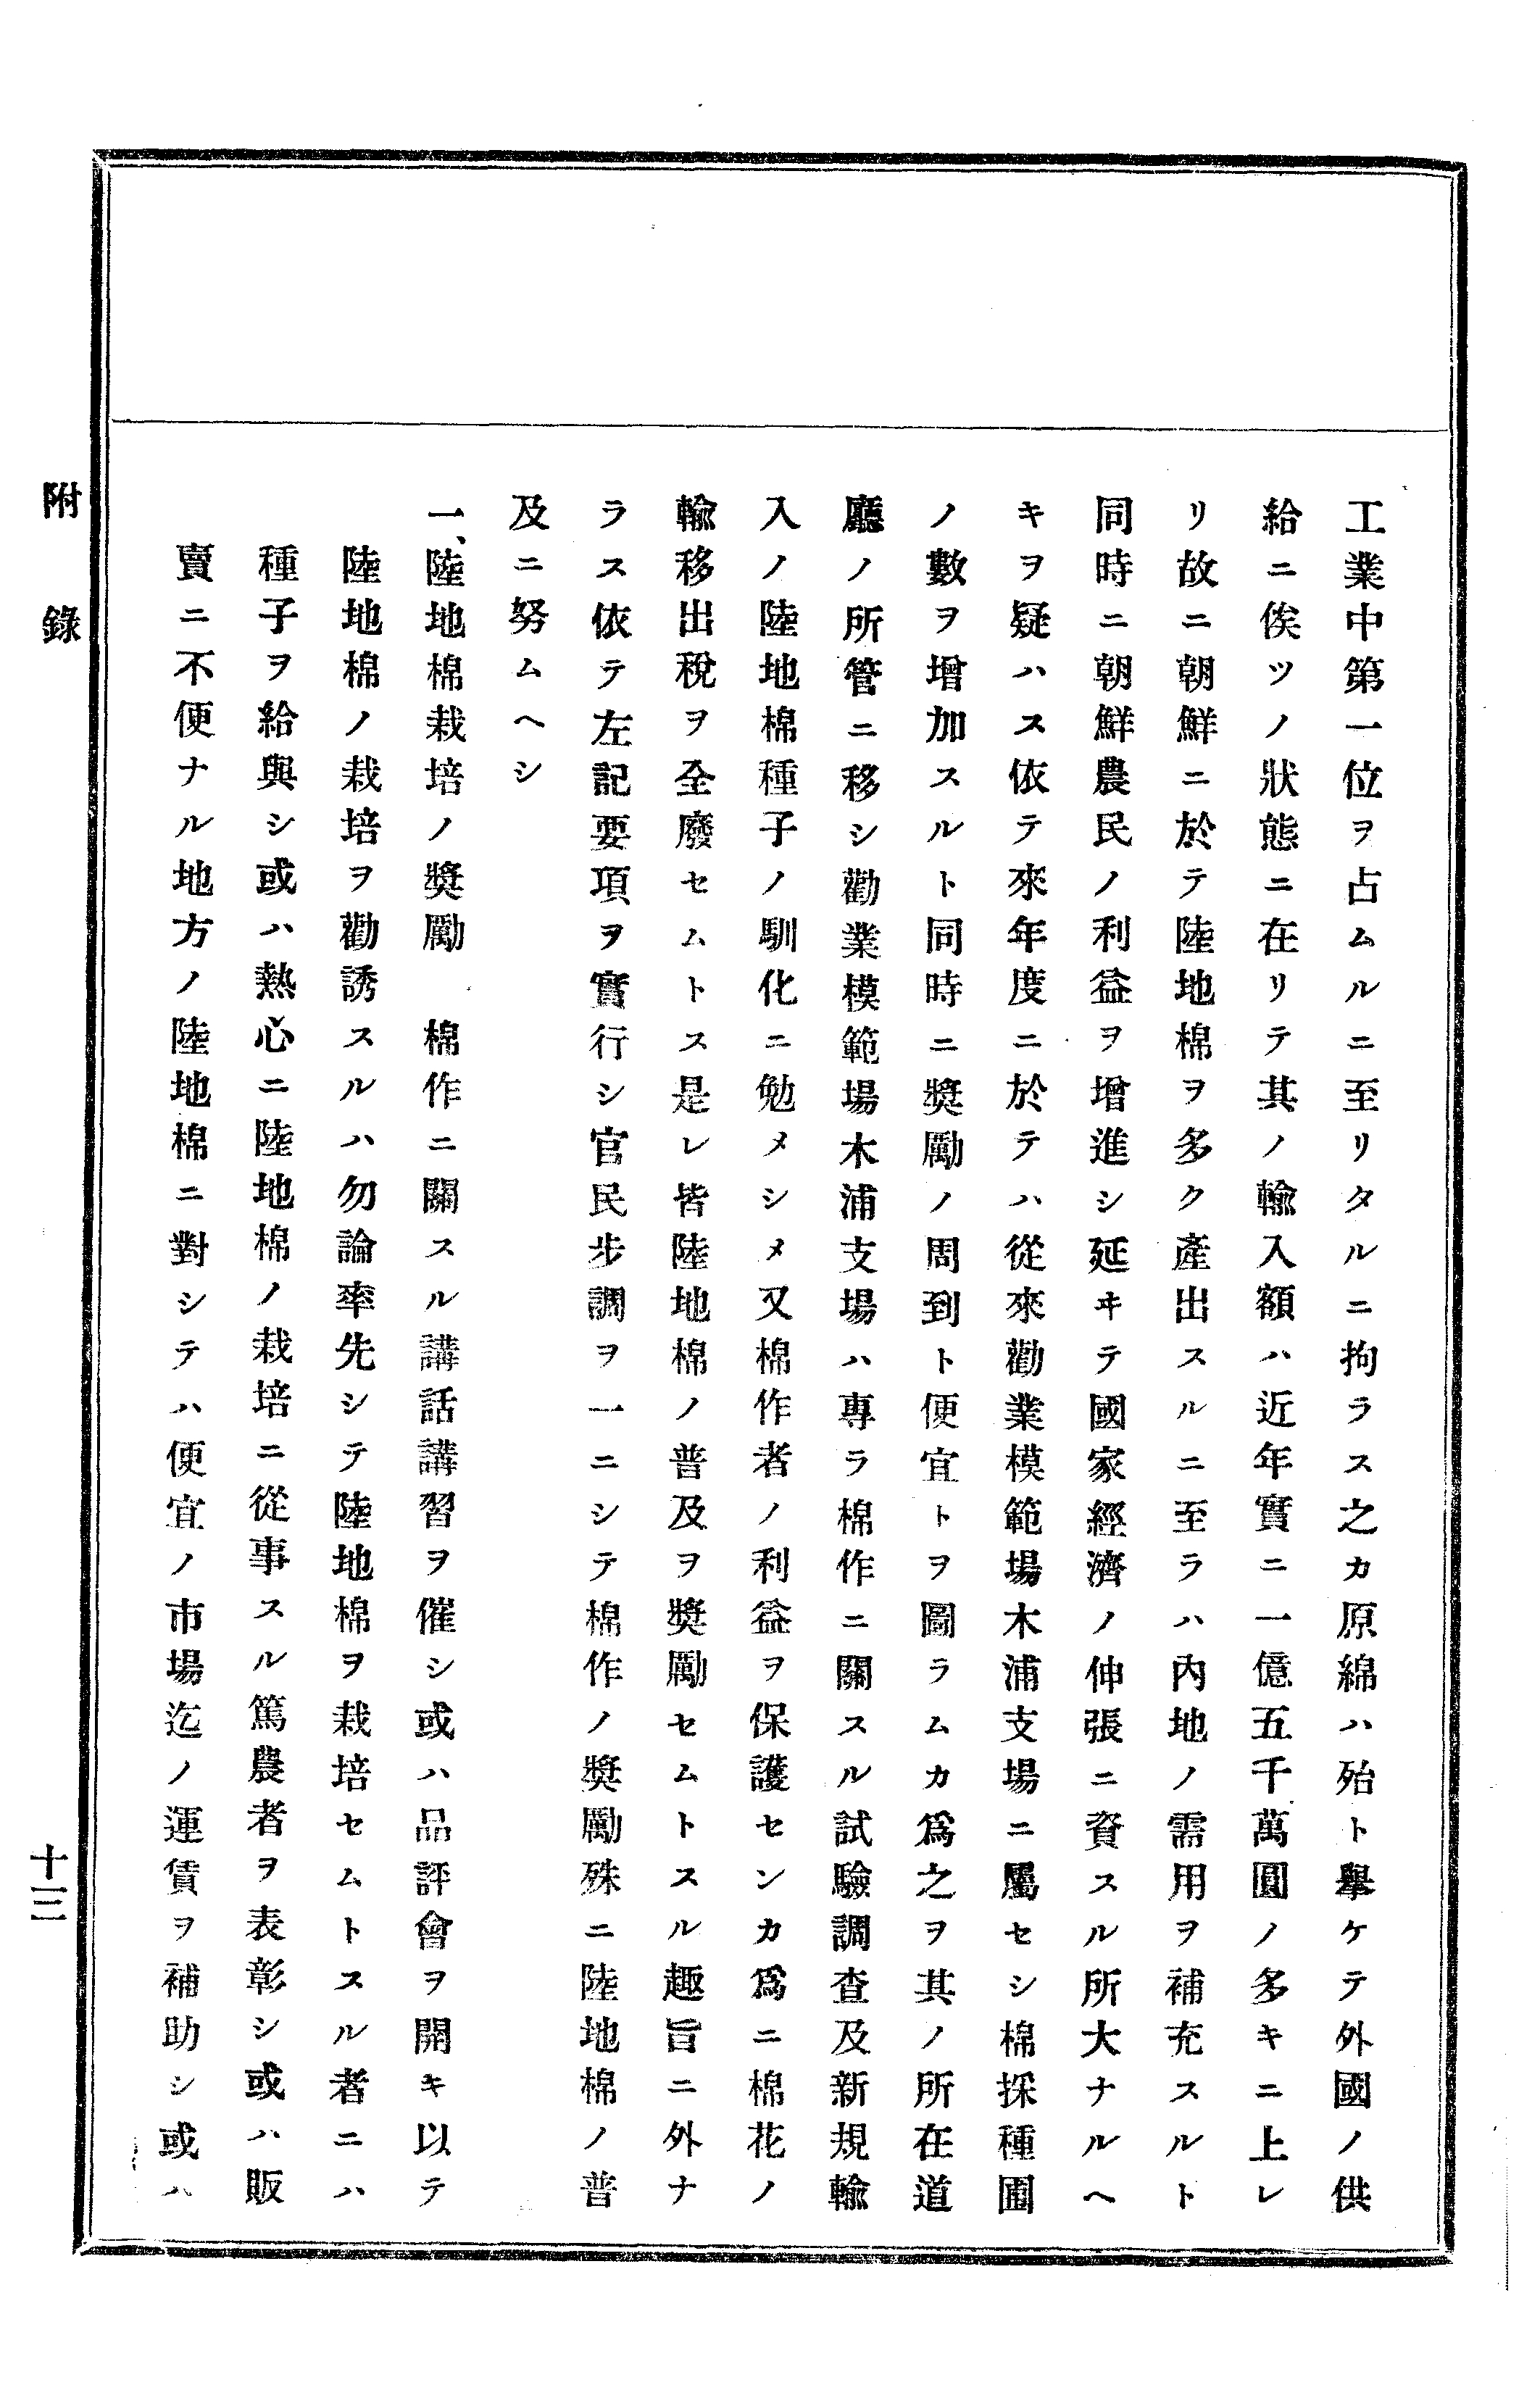 工業中第一位ヲ占ムルニ至リタルニ拘ラス之カ原綿ハ殆ト擧ケテ外國ノ供
給ニ俟ツノ狀態ニ在リテ其ノ輸入額ハ近年實ニ一億五千萬圓ノ多キニ上レ
リ故ニ朝鮮ニ於テ陸地棉ヲ多ク產出スルニ至ラハ內地ノ需用ヲ補充スルト
同時ニ朝鮮農民ノ利益ヲ增進シ延ヰテ國家經濟ノ伸張ニ資スル所大ナルヘ
キヲ疑ハス依テ來年度ニ於テハ從來勸業模範場木浦支場ニ屬セシ棉採種圃
ノ數ヲ增加スルト同時ニ奬勵ノ周到ト便宜トヲ圖ラムカ爲之ヲ其ノ所在道
廳ノ所管ニ移シ勸業模範場木浦支場ハ專ラ棉作ニ關スル試驗調査及新規輸
入ノ陸地棉種子ノ馴化ニ勉メシメ又棉作者ノ利益ヲ保護センカ爲ニ棉花ノ
輸移出稅ヲ全廢セムトス是レ皆陸地棉ノ普及ヲ奬勵セムトスル趣旨ニ外ナ
ラス依テ左記要項ヲ實行シ官民步調ヲ一ニシテ棉作ノ奬勵殊ニ陸地棉ノ普
及ニ努ムヘシ
一、陸地棉栽培ノ奬勵　棉作ニ關スル講話講習ヲ催シ或ハ品評會ヲ開キ以テ
陸地棉ノ栽培ヲ勸誘スルハ勿論率先シテ陸地棉ヲ栽培セムトスル者ニハ
種子ヲ給與シ或ハ熱心ニ陸地棉ノ栽培ニ從事スル篤農者ヲ表彰シ或ハ販
賣ニ不便ナル地方ノ陸地棉ニ對シテハ便宜ノ市場迄ノ運賃ヲ補助シ或ハ
附錄
十三